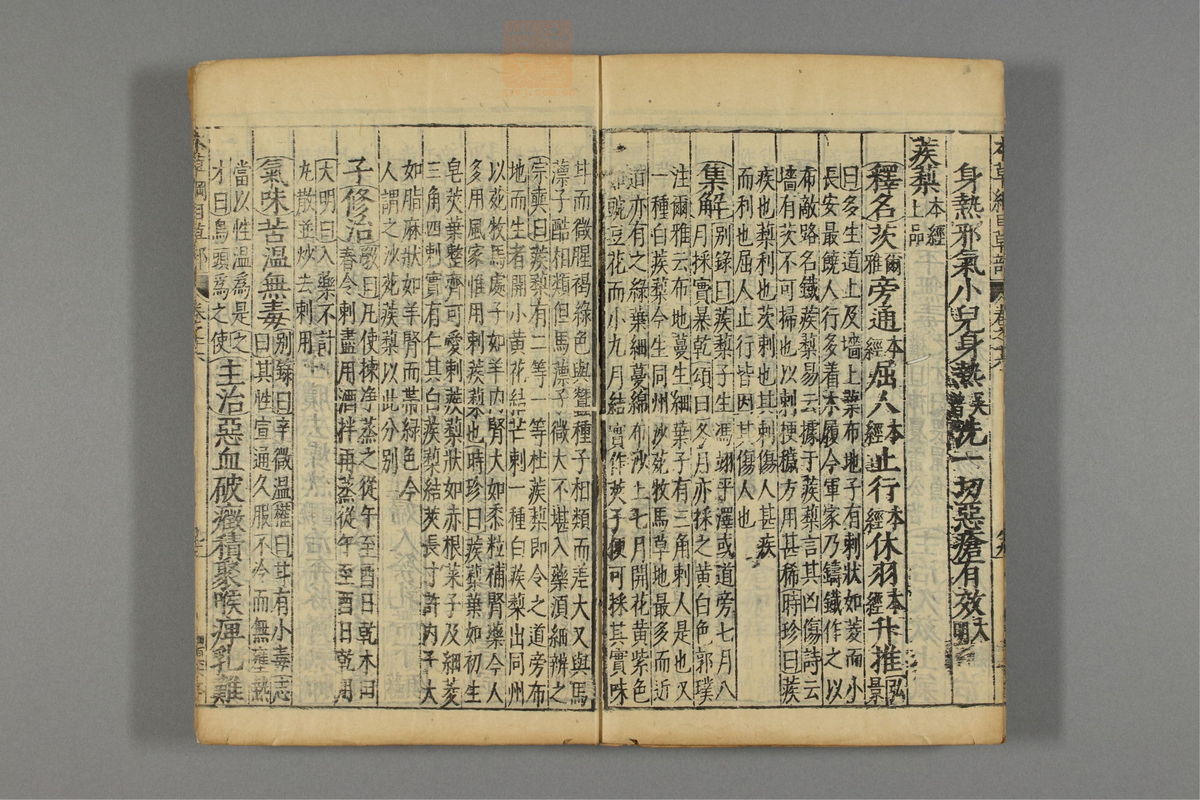 身熱邪氣小兒身熱吳普洗一切惡瘡有效大明
蒺藜本經上品
釋名茨爾雅旁通本經屈人本經止行本經休羽本經升推弘景
曰多生道上及墻上葉布地子有刺狀如菱而小
長安最饒人行多着木履今軍家乃鑄鐵作之以
布敵路名鐵蒺藜易云據于蒺藜言其凶傷詩云
墻有茨不可掃也以刺梗穢方用甚稀時珍曰蒺
疾也藜利也茨刺也其刺傷人甚疾
而利也屈人止行皆因其傷人也
集解别錄曰蒺藜子生馮翊平澤或道旁七月八
月採實暴乾頌曰冬月亦採之黃白色郭璞
注爾雅云布地蔓生細葉子有三角刺人是也又
一種白蒺藜今生同州沙苑牧馬草地最多而近
道亦有之綠葉細蔓綿布沙上七月開花黃紫色
豌豆花而小九月結實作莢子便可採其實味
甘而微腥褐綠色與蠶種子相類而差大又與馬
薸子酷相類但馬薸子微大不堪入藥須細辨之
宗奭曰蒺藜有二等一等杜蒺藜即今之道旁布
地而生者開小黃花結芒刺一種白蒺藜出同州
沙苑牧馬處子如羊內腎大如黍粒補腎藥今人
多用風家惟用刺蒺藜也時珍曰蒺藜葉如初生
皂莢葉整齊可愛刺蒺藜狀如赤根菜子及細菱
三角四刺實有仁其白蒺藜結莢長寸許內子大
如脂麻狀如羊腎而帶綠色今
人謂之沙苑蒺藜以此分别
子修治斆曰凡使揀净蒸之從午至酉日乾木臼
舂令刺盡用酒拌再蒸從午至酉日乾用
大明曰入藥不計
丸散並炒去刺用
氣味苦溫無毒别錄曰辛微溫權曰甘有小毒志
曰其性宣通久服不冷而無壅熱
當以性溫為是之
才曰烏頭為之使主治惡血破癥積聚喉痺乳難